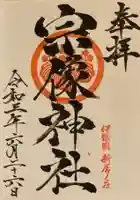 奉拝
伊勢國 新居ノ庄
宗像神社
令和三年六月二十六日